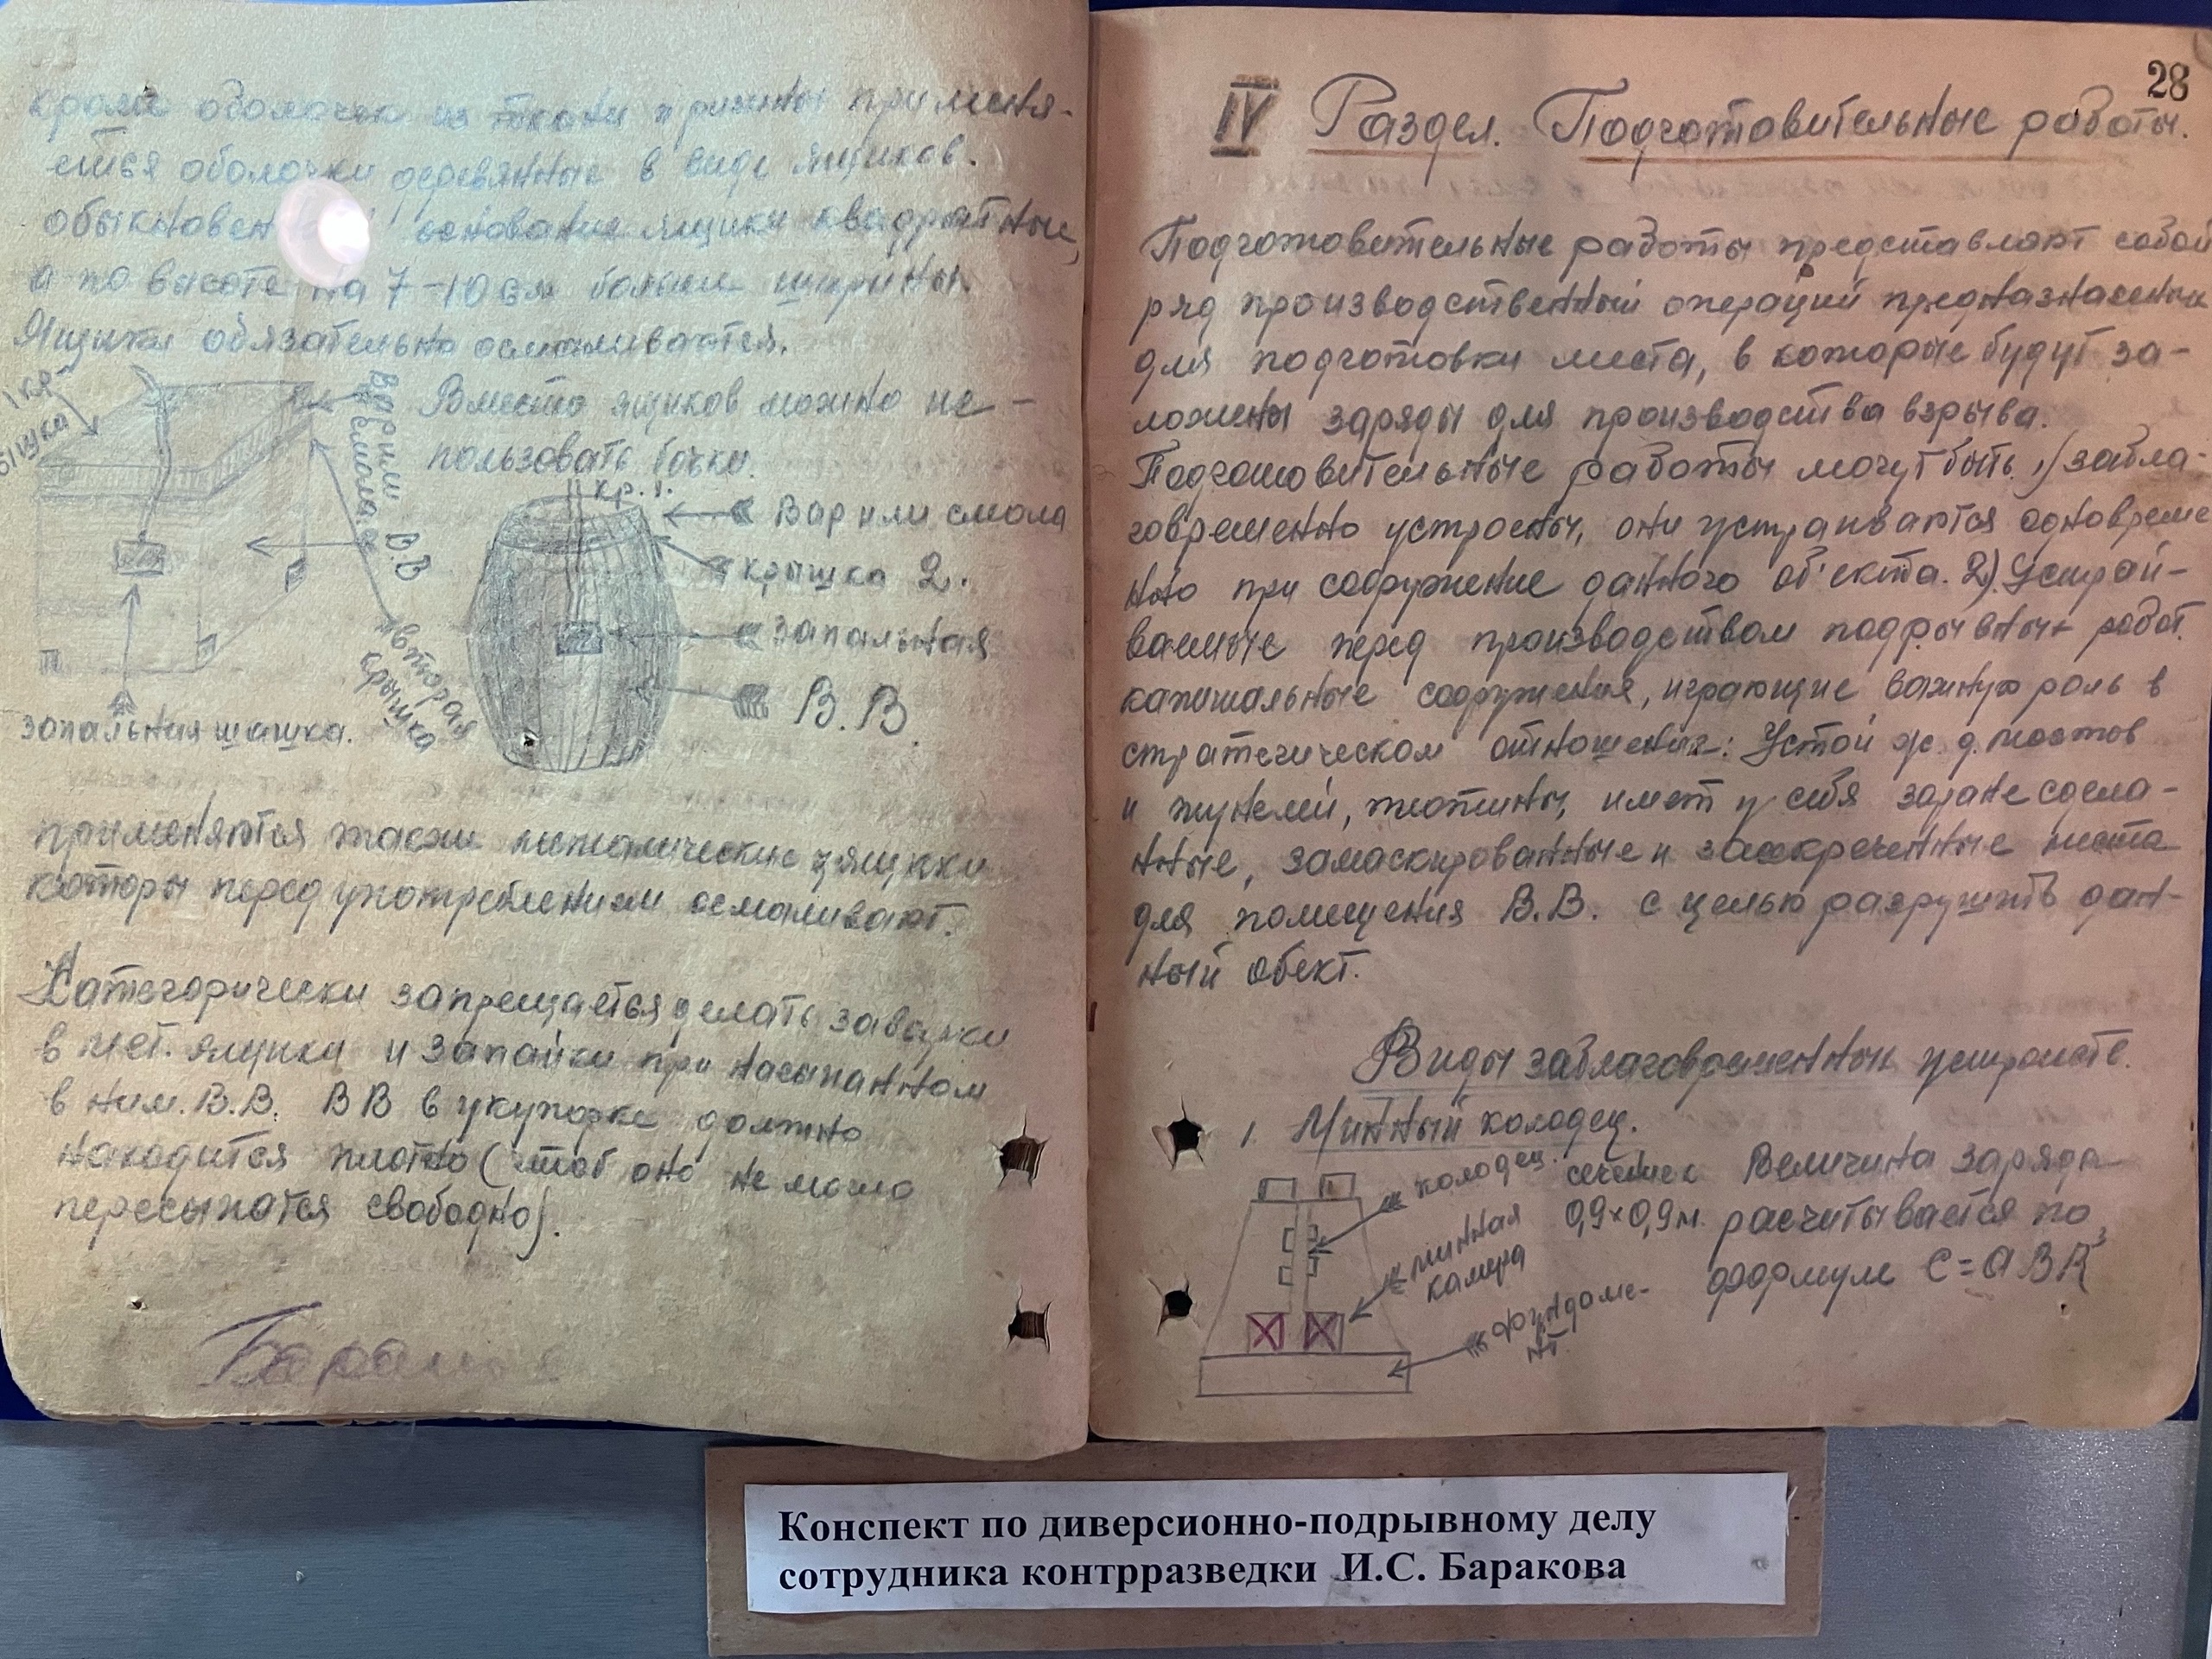 кроме оболочек из ткани и резины применя-
еться оболочки деревянные в виде ящиков.
обыкновен основание ящики квадратные,
а по высоте на 7-10 см больше ширины.
Ящики обязательно осмаливаются.
Вместо ящиков можно ис-
пользовать бочки.
1 кр-
ышка
Вар или
смола
В.В
вторая
крышка
запальная шашка.
кр. 1.
Вар или смола
крышка 2.
запальная
В.В.
применяются также металические ящики
которы перед употреблением осмаливают.
Категорически запрещаеться делать
в мет. ящики и запайки при насыпанном
в ним. В.В. ВВ в укупорке должно
находится плотно (чтоб оно не могло
пересыпатся свободно).
28
IV Раздел. Подготовительные работы.
Подготовительные работы представляют собой
ряд производственный операций предназначеных
для подготовки места, в которые будут за-
ложены заряды для производства взрыва.
Подготовительные работы могут быть 1) забла-
говременно устроены, они устраиваются одновреме
нно при сооружение данного об'екта. 2) Устраи-
ваемые перед производством подрывных работ.
капитальные сооружения, играющие важную роль в
стратегическом отношении: Устои ж. д. мостов
и тунелей, плотины, имет у себя заране сдела-
нные, замаскированные и засекреченные места
для помещения В.В. с целью разрушить дан-
ный обект.
Виды заблаговременных устройств.
1. Минный колодец.
колодец.
минная
камера
фундаме-
нт.
сечением
0,9×0,9м.
Величина заряда
расчитывается по
формуле C=aBR³
Конспект по диверсионно-подрывному делу
сотрудника контрразведки И.С. Баракова